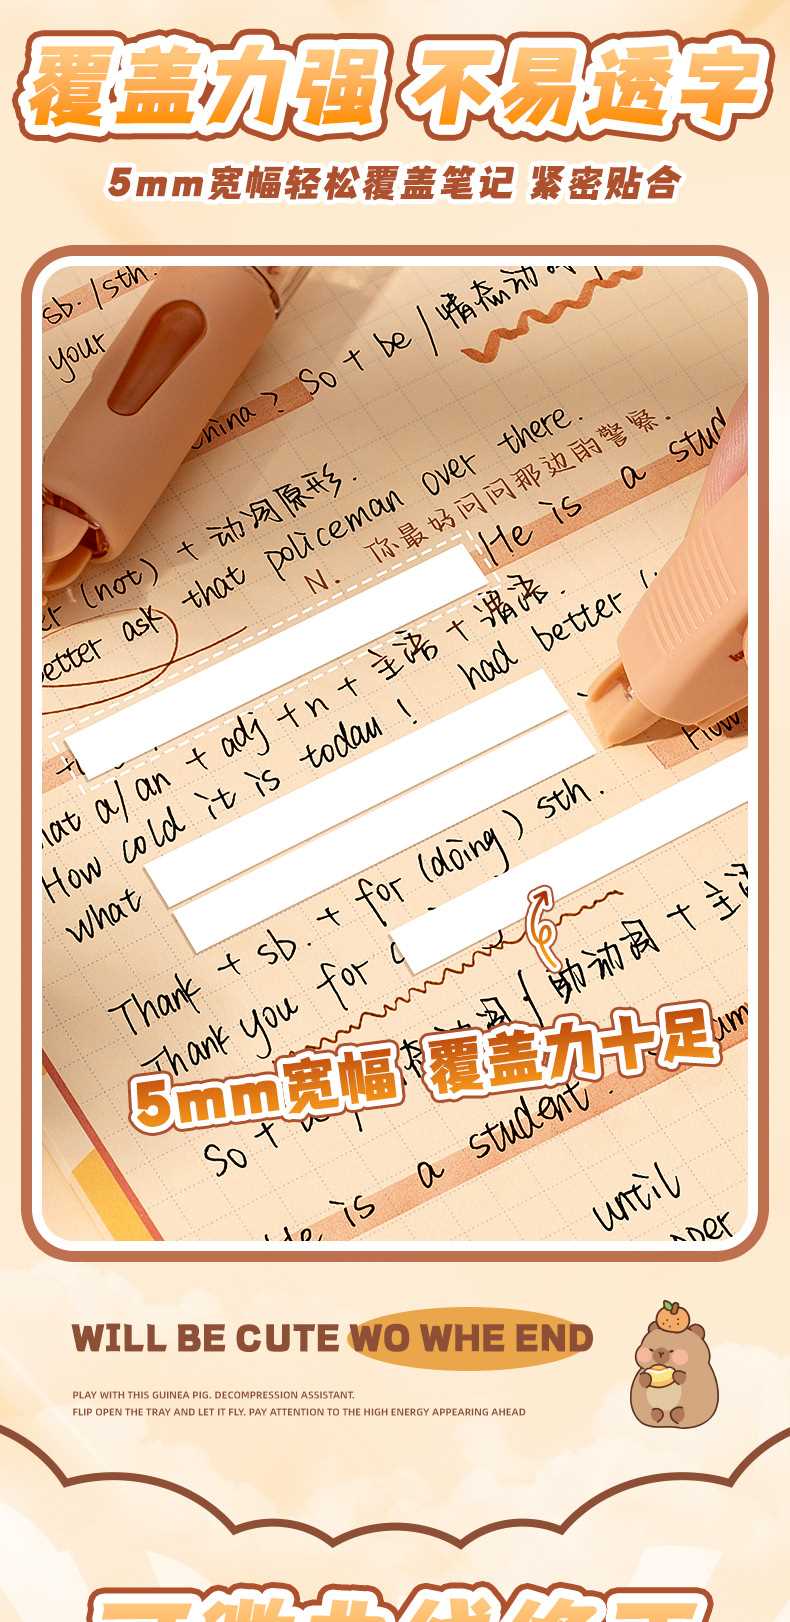 覆盖力强 不易透字
5mm宽幅轻松覆盖笔记 紧密贴合
sb. /sth.
your
china? So + be / 情态动词
er (not) + 动词原形.
etter ask that policeman over there.
N. 你最好问问那边的警察.
He is a stud
at a/an + adj + n + 主语 + 谓语.
How cold it is today! had better
What
How
Thank + sb. + for (doing) sth.
Thank you for
助动词 + 主语
5mm宽幅 覆盖力十足
So +
He is a student.
until
WILL BE CUTE WO WHE END
PLAY WITH THIS GUINEA PIG. DECOMPRESSION ASSISTANT.
FLIP OPEN THE TRAY AND LET IT FLY. PAY ATTENTION TO THE HIGH ENERGY APPEARING AHEAD